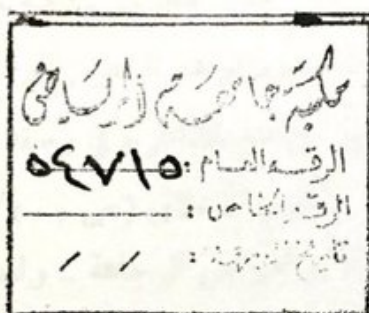 مكتبة جامعة الرياض
الرقم العام : ٥٤٧١٥
الرقم الخاص :
تاريخ : / /